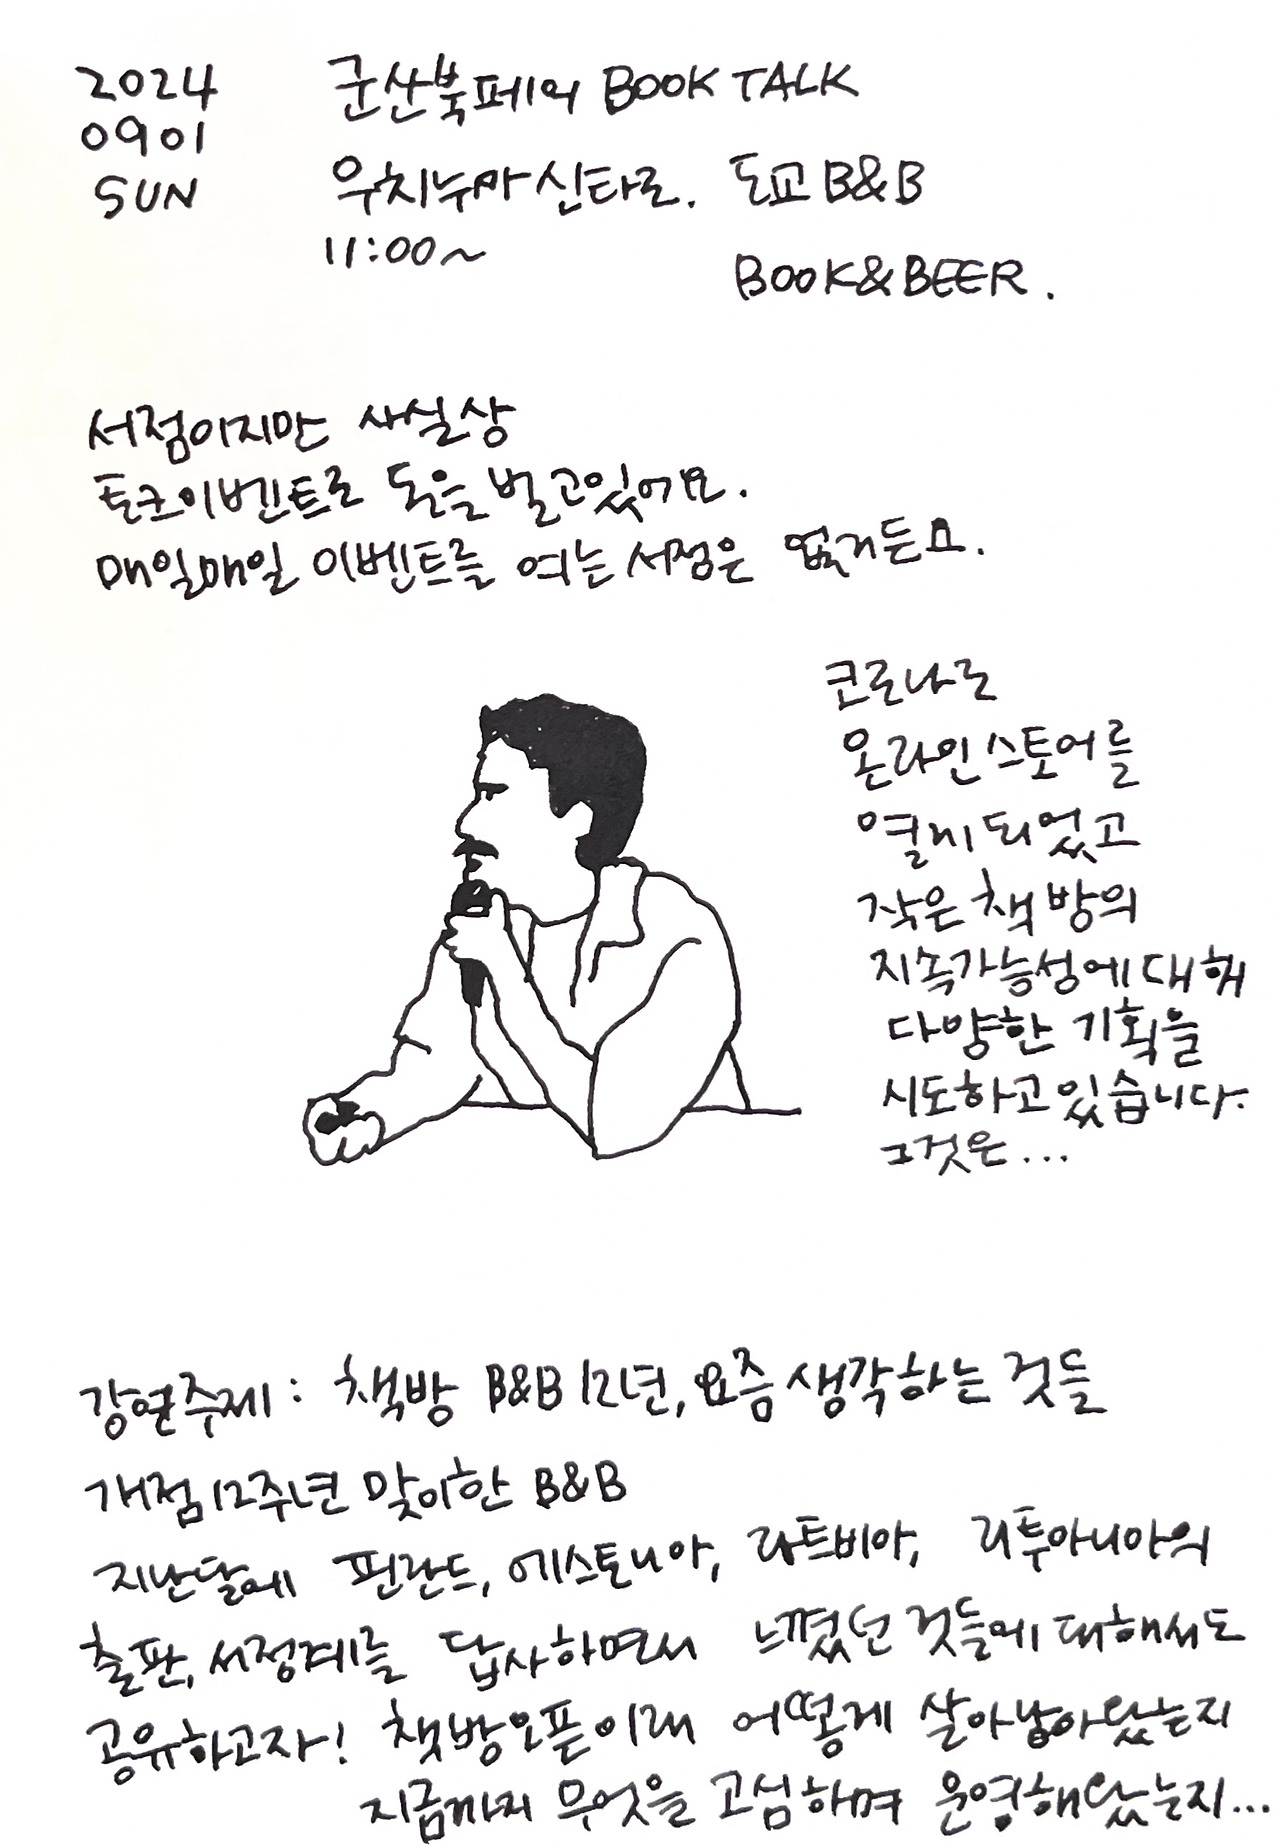 2024
0901
SUN
군산북페어 BOOK TALK
우치누마 신타로. 도쿄 B&B
11:00~
BOOK&BEER.
서점이지만 사실상
토크이벤트로 돈을 벌고있어요.
매일매일 이벤트를 여는 서점은 없거든요.
코로나로
온라인 스토어를
열게 되었고
작은 책방의
지속가능성에 대해
다양한 기획을
시도하고 있습니다.
그것은...
강연주제 : 책방 B&B 12년, 요즘 생각하는 것들
개점 12주년 맞이한 B&B
지난달에 핀란드, 에스토니아, 라트비아, 리투아니아의
출판, 서점계를 답사하면서 느꼈던 것들에 대해서도
공유하고자! 책방오픈이래 어떻게 살아남아왔는지
지금까지 무엇을 고심하며 운영해왔는지...